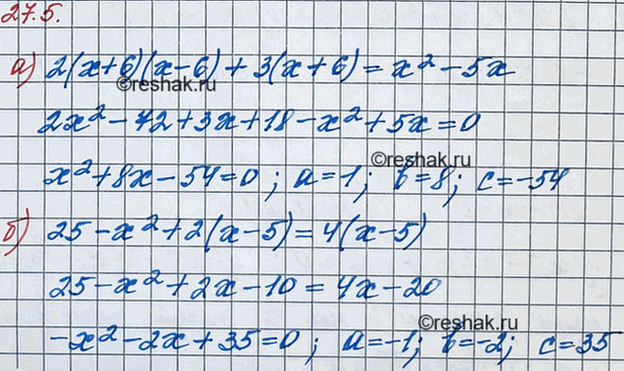 27.5.
а) 2(x+6)(x-6)+3(x+6)=x²-5x
©reshak.ru
2x²-72+3x+18-x²+5x=0
©reshak.ru
x²+8x-54=0; a=1; b=8; c=-54
б) 25-x²+2(x-5)=4(x-5)
25-x²+2x-10=4x-20
©reshak.ru
-x²-2x+35=0; a=-1; b=-2; c=35